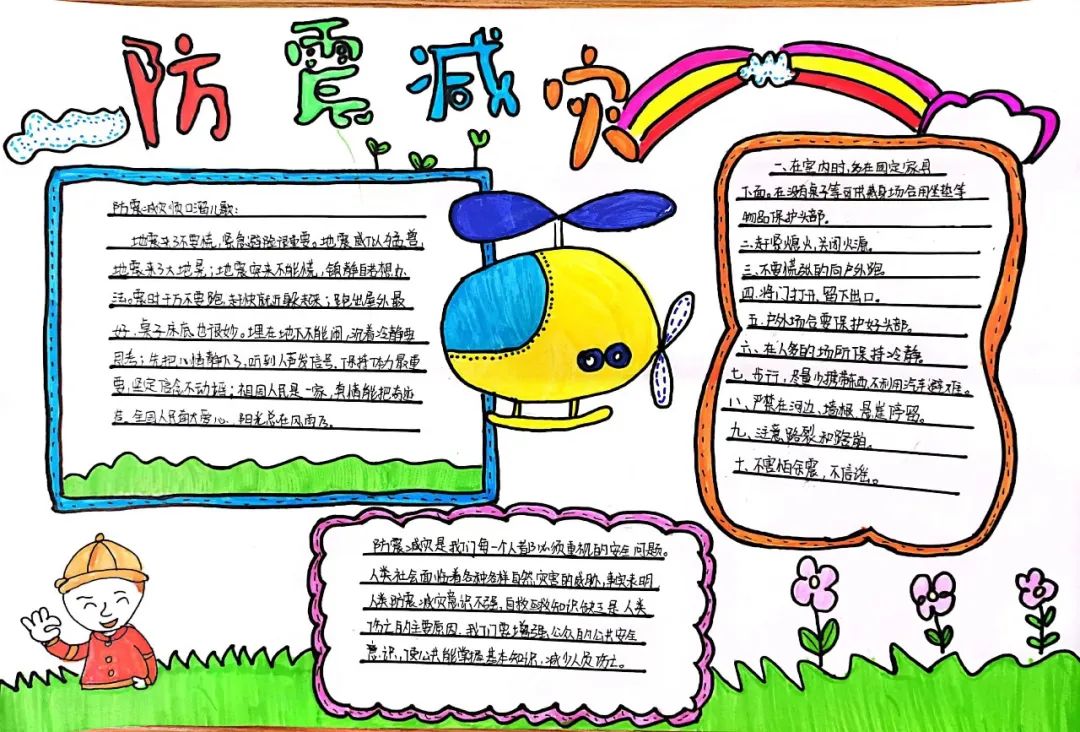 防震减灾
防震减灾顺口溜儿歌:
地震来了不要慌,紧急避险很重要。地震威力以猛兽,
地震来了大地晃;地震突来不能慌,镇静自若想办
法。震时千万不要跑,赶快就近躲起来;跑出屋外最
好,桌子床底也很妙。埋在地下不能闹,沉着冷静要
思考;先把心情静下了,听到人声发信号。保持体力最重
要,坚定信念不动摇;祖国人民是一家,真情能把奇迹
全国人民有大爱心,阳光总在风雨后。
一、在室内时,务在固定家具
下面。在没有桌子等可供藏身场合用坐垫等
物品保护头部。
二.赶紧熄火,关闭火源。
三.不要慌张的向户外跑。
四.将门打开,留下出口。
五、户外场合要保护好头部。
六、在人多的场所保持冷静。
七、步行,尽量少携带东西不利用汽车避难。
八、严禁在河边、墙根、悬崖停留。
九、注意路裂和
十、不害怕余震,不信谣。
防震减灾是我们每一个人都必须重视的安全问题。
人类社会面临着各种各样自然灾害的威胁,事实表明
人类防震减灾意识不强,自救互救知识缺乏是人类
伤亡的主要原因.我们要增强公众的公共安全
意识,使公共能掌握基本知识,减少人员伤亡。